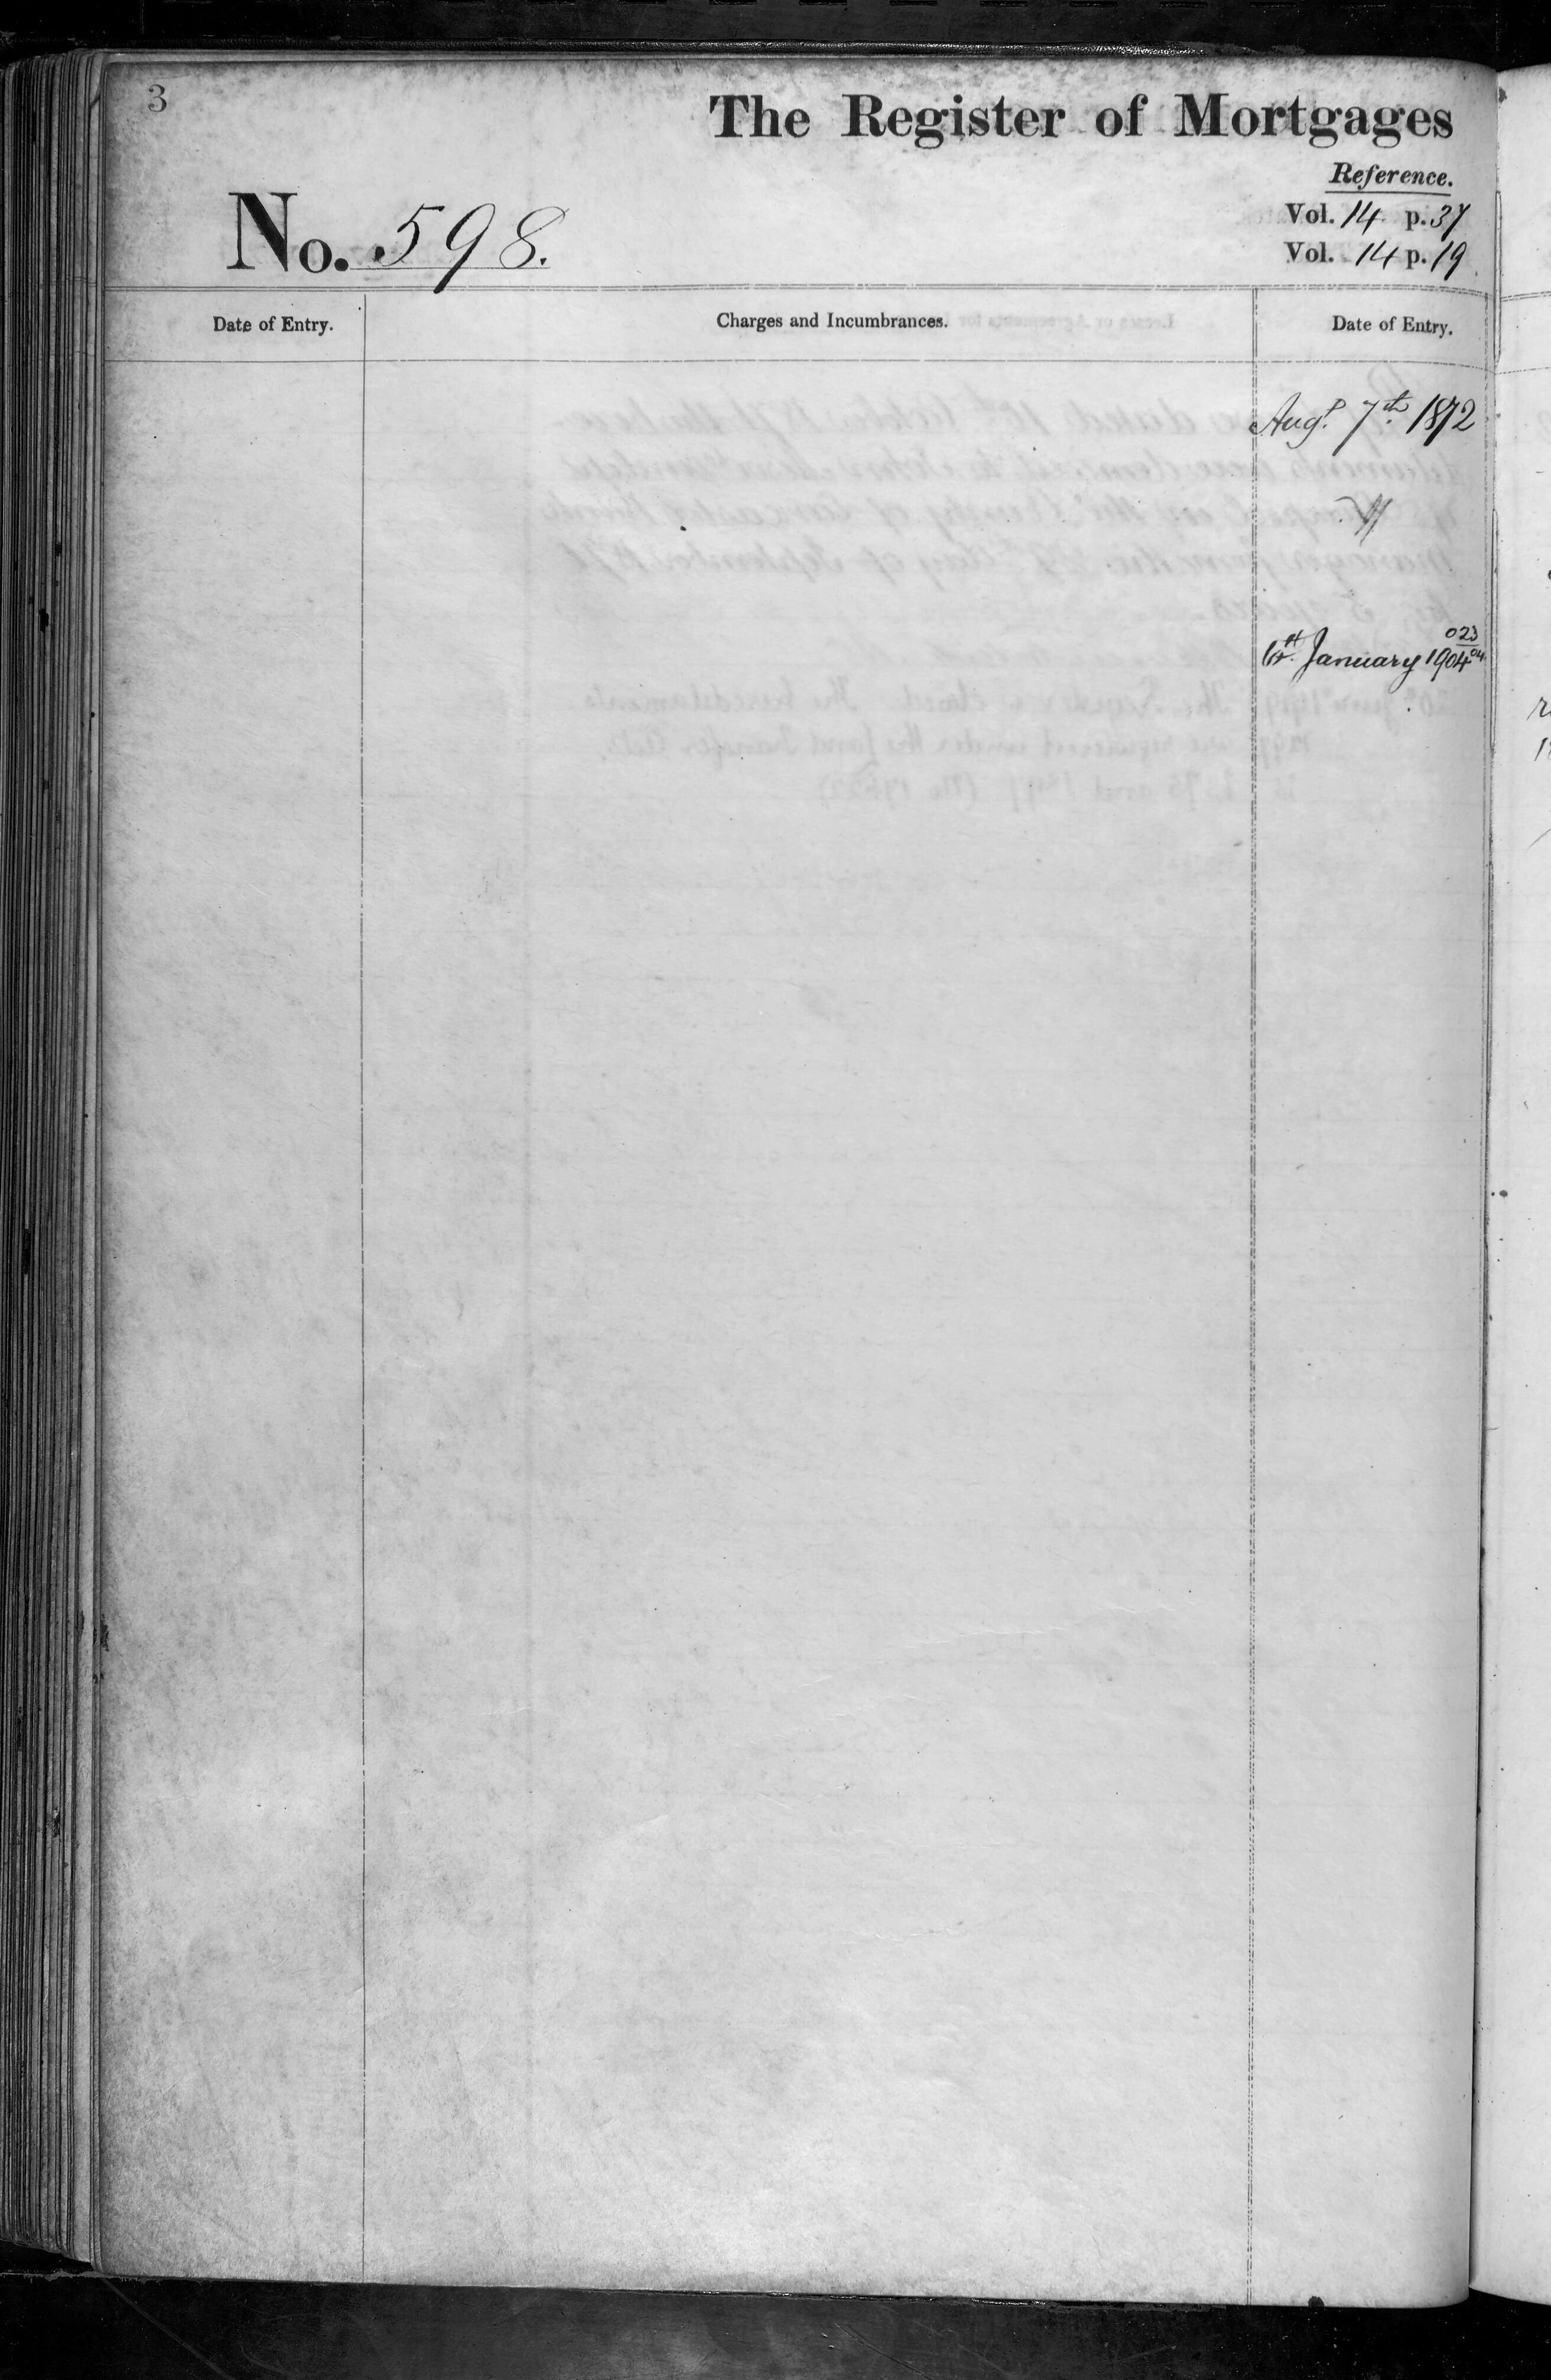 3
The Register of Mortgages
Reference.
Vol. 14 p. 37
No. 598.
Vol. 14 p. 19
Date of Entry.
Charges and Incumbrances.
Date of Entry.
Augt. 7th 1872
023
January 1904 04